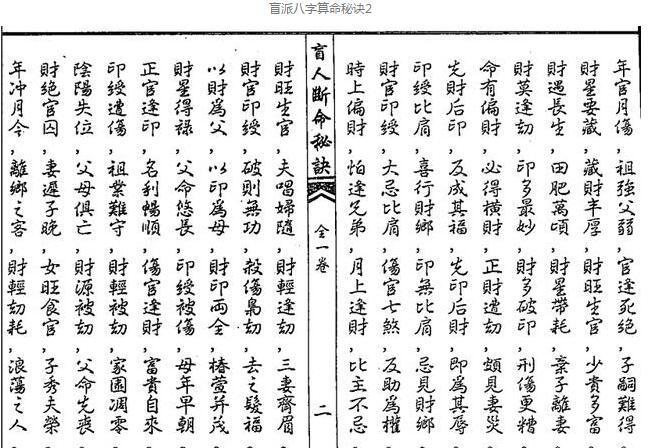 盲派八字算命秘诀2
年官月傷，祖強父弱，官逢死絕，子嗣難得
財星要藏，藏財丰厚，財旺生官，少貴多富
財遇長生，田肥萬頃，財星帶耗，棄子離妻
財莫逢劫，印多最妙，財多破印，刑傷更糟
命有偏財，必得橫財，正財遭劫，頗見妻災
先財后印，反成其福，先印后財，即為其辱
印綬比肩，喜行財鄉，印無比肩，忌見財鄉
財官印綬，大忌比肩，傷官七煞，反助為權
時上偏財，怕逢兄弟，月上逢財，比主不忌
盲人斷命秘訣 全一卷 二
財旺生官，夫唱婦隨，財輕逢劫，三妻齊眉
財官印綬，破則無功，殺傷梟劫，去之髮福
以財為父，以印為母，財印兩全，椿萱并茂
財星得祿，父命悠長，印綬被傷，母年早朝
正官逢印，名利暢順，傷官逢財，富貴自來
印綬遭傷，祖業難守，財輕被劫，家園凋零
陰陽失位，父母俱亡，財源被劫，父命先喪
財絕官囚，妻遲子晚，女旺食官，子秀夫榮
年冲月令，離鄉之客，財輕劫耗，浪蕩之人